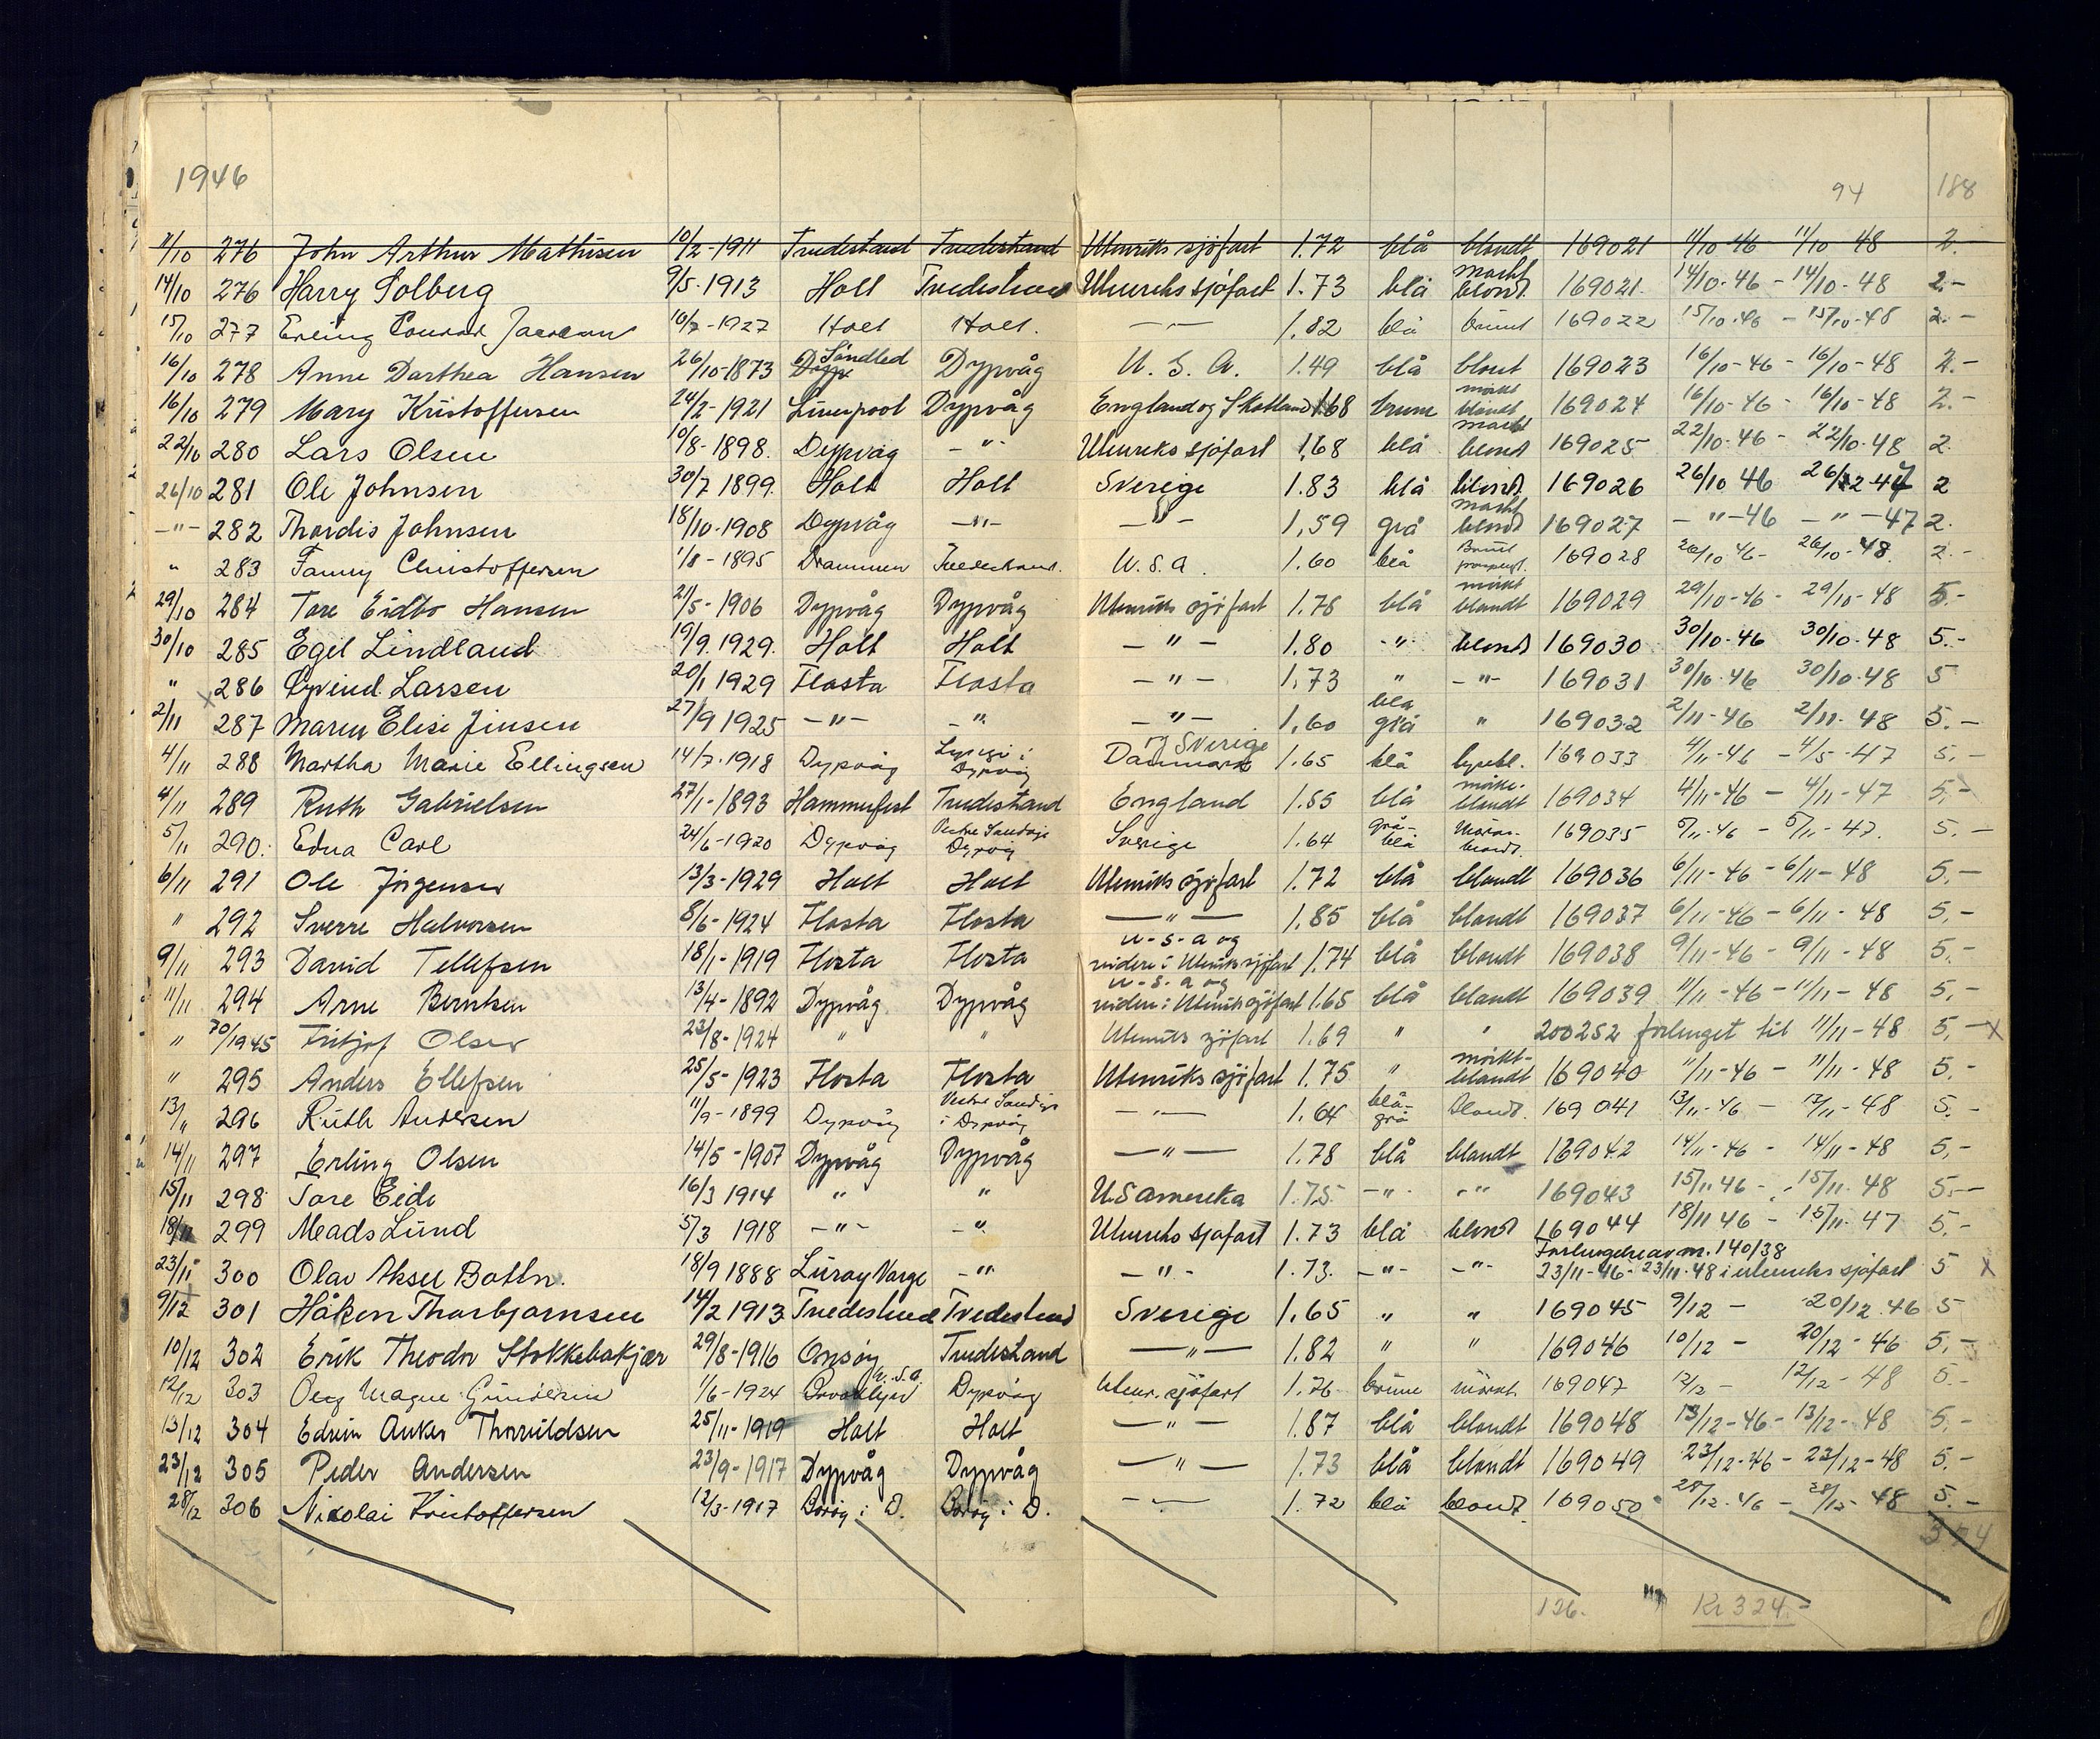 1946
94 188
11/10 276 John Arthur Mathisen 10/2-1911 Tvedestrand Tvedestrand Utenriks sjöfart 1.72 blå blondt 169021 11/10-46 11/10-48 2.
14/10 276 Harry Solberg 9/5-1913 Holt Tvedestrand Utenriks sjöfart 1.73 blå mörkt blond 169021 14/10-46 - 14/10-48 2-
15/10 277 Erling Conrad Jacobsen 10/7-1927 Holt Holt. —"— 1.82 blå brunt 169022 15/10-46 - 15/10-48 2.-
16/10 278 Anne Dorthea Hansen 26/10-1873 Söndled Dypvåg U. S. A. 1.49 blå blont 169023 16/10-46 - 16/10-48 2.-
16/10 279 Mary Kristoffersen 24/2-1921 Liverpool Dypvåg England og Skotland 1.68 brune mörkt blondt 169024 16/10-46 - 16/10-48 2.-
22/10 280 Lars Olsen 10/8-1898. Dypvåg -"- Utenriks sjöfart 1,68 blå mörkt blond 169025 22/10-46 - 22/10-48 2.
26/10 281 Ole Johnsen 30/7 1899. Holt Holt Sverige 1.83 blå blond 169026 26/10 46 26/12-47 2
-"- 282 Thordis Johnsen 18/10-1908 Dypvåg -"- -"- 1,59 grå mörkt blond 169027 -"-46 -"-47 2.
" 283 Fanny Christoffersen 1/8-1895 Drammen Tvedestrand. U.S.A. 1.60 blå brunt 169028 26/10 46- 26/10-48. 2.-
29/10 284 Tore Eidbo Hansen 21/5-1906 Dypvåg Dypvåg Utenriks sjöfart 1.78 blå mörkt blondt 169029 29/10-46- 29/10-48 5.-
30/10 285 Egil Lindland 19/9.1929. Holt Holt -"- 1.80 -" blond 169030 30/10-46 30/10-48 5.-
" x 286 Øyvind Larsen 20/1 1929 Flosta Flosta -"- 1.73 " -"- 169031 30/10-46 30/10-48 5
2/11 287 Maren Elise Jensen 27/9 1925 -"- -"- -"- 1.60 blå grå " 169032 2/11-46 2/11-48 5.-
4/11 288 Martha Marie Ellingsen 14/7-1918 Dypvåg Lyngör i Dypvåg Danmark og Sverige 1.65 blå lysebl. 169033 4/11-46 - 4/5-47 5.-
4/11 289 Ruth Gabrielsen 27/1-1893 Hammerfest Tvedestrand England 1.65 blå mörke-blondt 169034 4/11-46 - 4/11-47 5.-
5/11 290. Edna Carl 24/6-1920 Dypvåg Vestre Sandöya Dypvåg Sverige 1.64 grå-blå mörk-blondt. 169035 5/11-46 - 5/11-47. 5.-
6/11 291 Ole Jörgensen 13/3-1929 Holt Holt Utenriks sjöfart 1.72 blå blondt 169036 6/11-46 - 6/11-48 5.-
" 292 Sverre Halvorsen 8/6-1924 Flosta Flosta —"— 1.85 blå blondt 169037 6/11-46 - 6/11-48 5.-
9/11 293 David Tellefsen 18/1-1919 Flosta Flosta U-S-A og videre i Utenriks sjöfart 1.74 blå blondt 169038 9/11-46 - 9/11-48 5.
11/11 294 Arne Berntsen 13/4-1892 Dypvåg Dypvåg U-S-A og videre i Utenriks sjöfart 1.65 blå blondt 169039 11/11-46 - 11/11-48 5.-
" 70/1945 Fritjof Olsen 23/8-1924 " " Utenriks sjöfart 1.69 " " 200252 forlenget til 11/11-48 5.- x
" 295 Anders Ellefsen 25/5-1923 Flosta Flosta Utenriks sjöfart 1.75 " mörkt-blondt 169040 11/11-46 - 11/11-48 5.-
13/11 296 Ruth Andersen 11/9-1899 Dypvåg Vestre Sandöya i Dypvåg -"- 1.64 blå-grå blondt. 169041 13/11-46 - 12/11-48 5.-
14/11 297 Erling Olsen 14/5-1907 Dypvåg Dypvåg —"— 1.78 blå blondt 169042 14/11-46 - 14/11-48 5.-
15/11 298 Tore Eide 16/3 1914 " " U S Amerika 1.75 -"- -"- 169043 15/11 46 - 15/11-48 5.-
18/11 299 Meads Lund 5/3 1918 -"- -"- Utenriks sjöfart 1.73 blå blond 169044 18/11 46 - 15/11-47 5.-
23/11 300 Olav Aksel Botln. 18/9 1888 Lurøy Norge -"- -"- 1.73. -"- -"- Forlengelse av nr. 140/38 23/11-46-23/11-48 i utenriks sjöfart 5 x
9/12 301 Håken Thorbjørnsen 14/2 1913 Tvedestrand Tvedestrand Sverige 1.65 " " 169045 9/12 - 20/12.46 5
10/12 302 Erik Theodor Stokkebakjær 29/8-1916 Onsøy Tvedestrand —"— 1.82 " " 169046 10/12 - 20/12-46 5.-
12/12 303 Magne Gundersen 1/6-1924 Brooklyn U.S.A. Dypvåg Utenr. sjöfart 1.76 brune mörkt 169047 12/12 - 12/12-48 5.-
13/12 304 Edvin Anker Thorvildsen 25/11-1919 Holt Holt —"— 1.87 blå blondt 169048 13/12-46 - 13/12-48 5.-
23/12 305 Peder Andersen 23/9-1917 Dypvåg Dypvåg —"— 1.73 blå blondt 169049 23/12-46 - 23/12-48 5.-
28/12 306 Nikolai Kristoffersen 12/3-1917 Borøy i D. Borøy i D. -"- 1.72 blå blondt. 169050 28/12-46 - 28/12-48 5.-
374
126. Kr 324.-